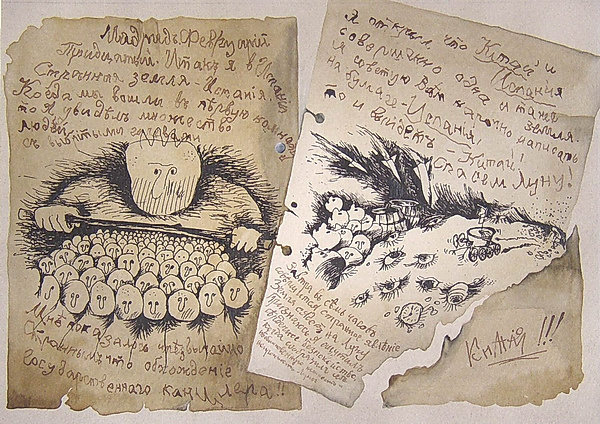 Мадридъ, Февруарій
Тридцатый. Итакъ я в Испаніи
Странная земля - Испанія.
Когда мы вошли въ первую комнату
то я увидѣлъ множество
людей
съ выбритыми головами
Мнѣ показалось чрезвычайно
страннымъ что обхожденіе
государственнаго канцлера!!
Я открылъ, что Китай и
Испанія
совершенно одна и таже
земля.
я советую Всѣмъ нарочно написать
на бумаге - Испанія,
то и выйдетъ Китай!
Спасем Луну!
Завтра въ семь часовъ
совершится странное явленіе
Земля сядетъ на луну
Китай !!!